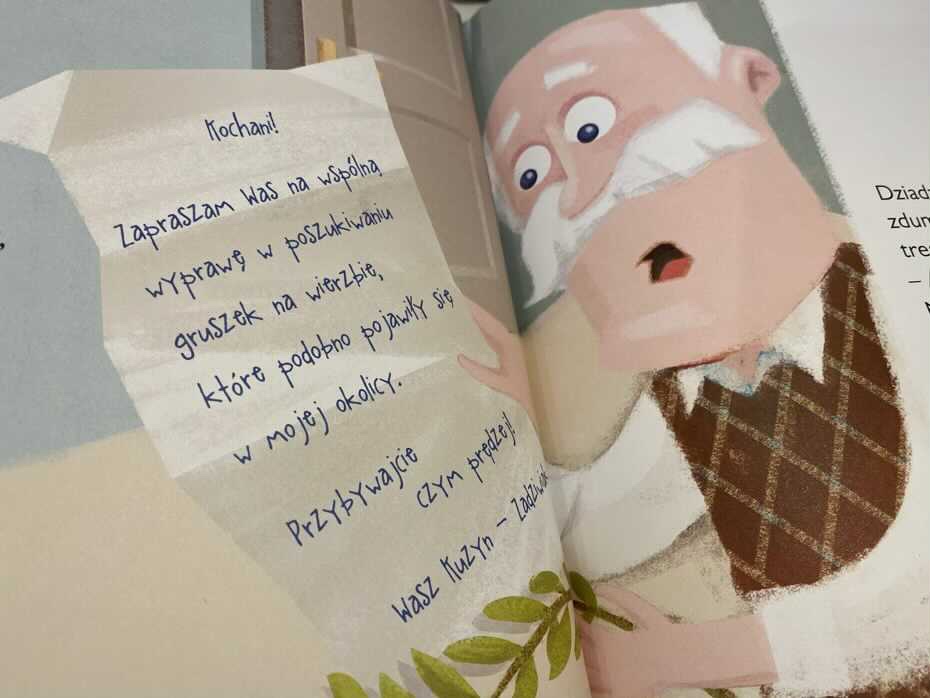 Kochani!
Zapraszam Was na wspólną
wyprawę w poszukiwaniu
gruszek na wierzbie,
które podobno pojawiły się
w mojej okolicy.
Przybywajcie
czym prędzej!
Wasz Kuzyn –